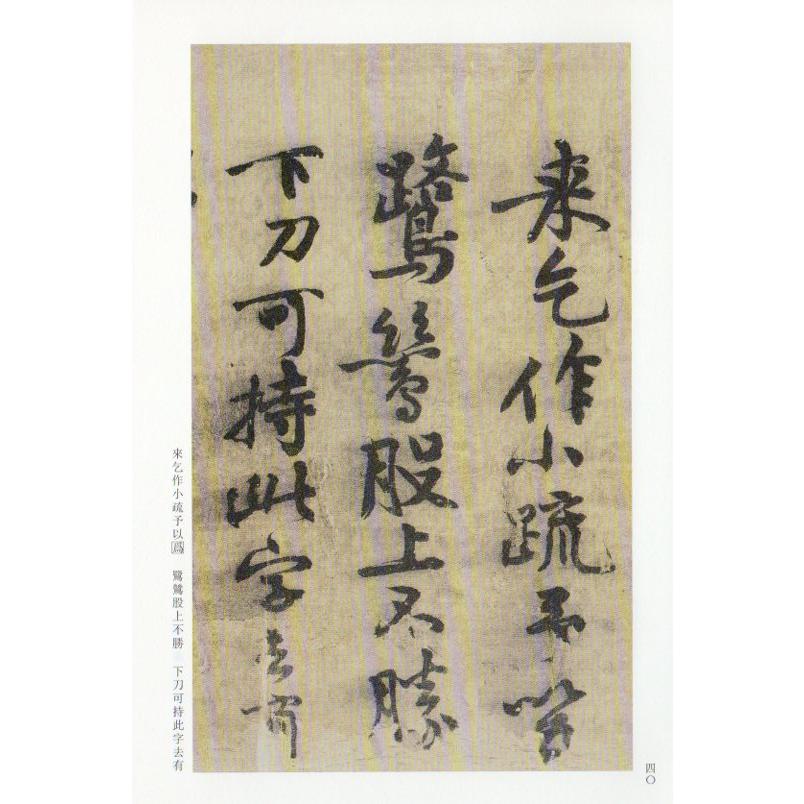 來乞作小疏予以
鷺鶿股上不勝
下刀可持此字去有
來乞作小疏予以爲 鷺鶿股上不勝 下刀可持此字去有
四〇